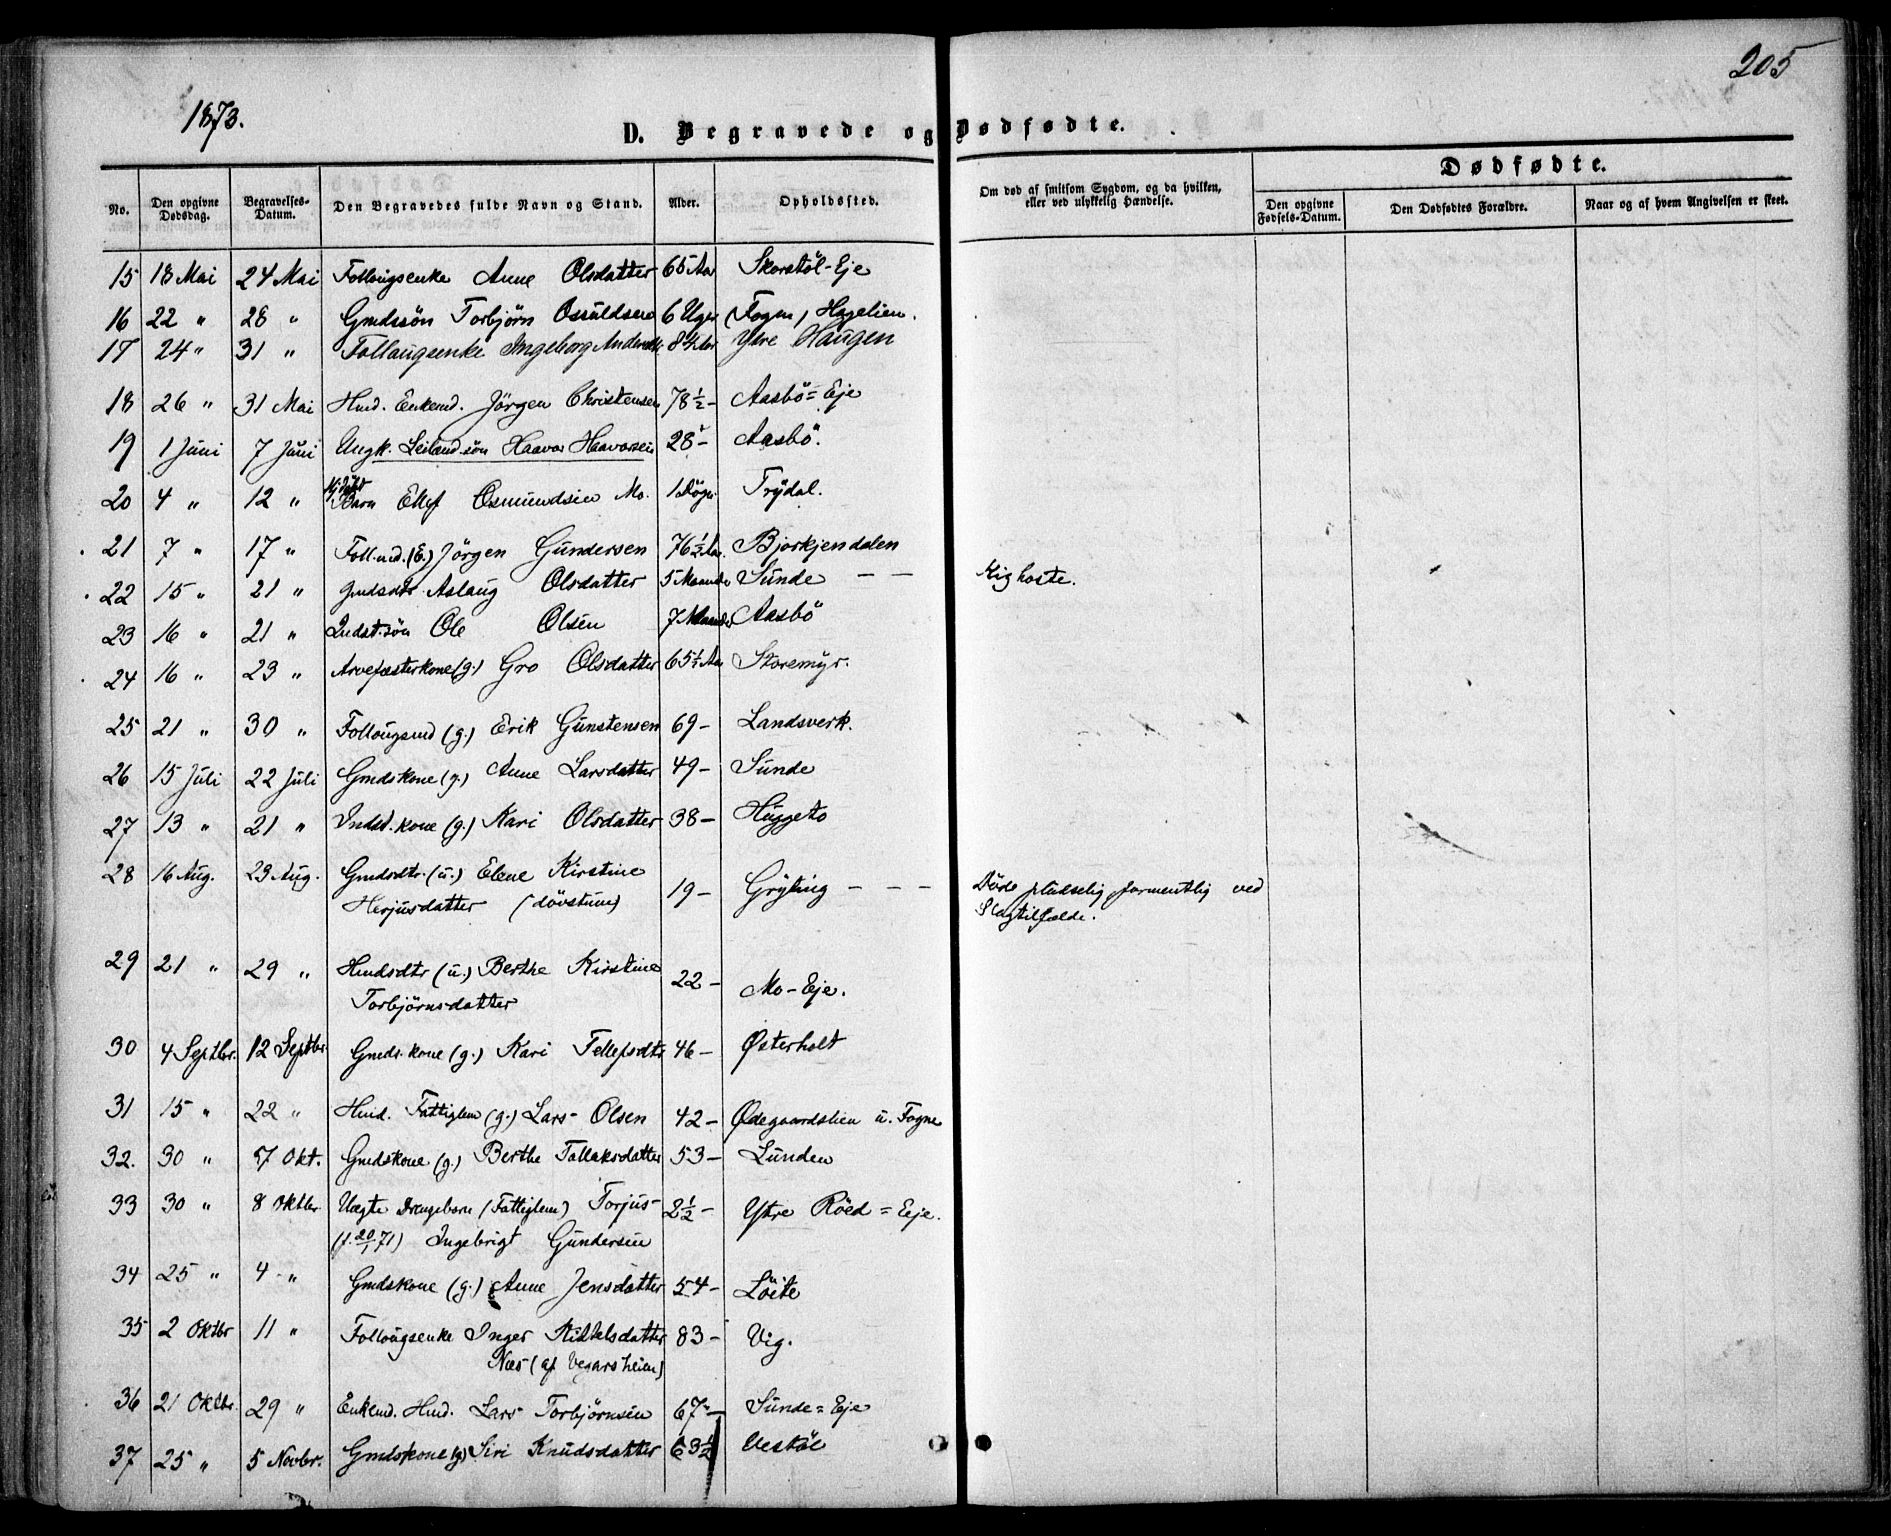 205
1873.
D. Begravede og Dødfødte.
No.
Den opgivne Dødsdag.
Begravelses-Datum.
Den Begravedes fulde Navn og Stand.
Alder.
Opholdssted.
Om død af smitsom Sygdom, og da hvilken, eller ved ulykkelig Hændelse.
Dødfødte.
Den opgivne Fødsels-Datum.
Den Dødfødtes Forældre.
Naar og af hvem Angivelsen er skeet.
15 18 Mai 24 Mai Follougsenke Anne Olsdatter 65 Aar Skorstöl-Eje
16 22 " 28 " Gmdssön Torbjörn Osuldsen 6 Uger (Fogne) Hagelien.
17 24 " 31 " Follaugsenke Ingeborg Andersdtr 84 Aar Ytre Haugen
18 26 " 31 Mai Hmd. Enkemd. Jörgen Christensen 78 1/2 - Aasbö = Eje
19 1 Juni 7 Juni Ungk. Leilænd.sön Haavor Haavorsen 28 - Aasbö.
20 4 " 12 " Hj.döbt Barn Ellef Osmundsen Mo. 1 Dögn Trydal.
21 7 " 17 " Foll.md. (E.) Jörgen Gundersen 76 1/2 Aar Bjorkjendalen
22 15 " 21 " Gmdsdtr Aslaug Olsdatter 5 Maaneder Sunde — — Kighoste.
23 16 " 21 " Indst.sön Ole Olsen 7 Maaneder Aasbö
24 16 " 23 " Arvefæsterkone (g.) Gro Olsdatter 65 1/2 Aar Storemyr.
25 21 " 30 " Follougsmd (g.) Erik Gunstensen 69 - Landsverk.
26 15 Juli 22 Juli Gmdskone (g.) Anne Larsdatter 49 - Sunde
27 13 " 21 " Indst.kone (g.) Kari Olsdatter 38 - Huggeto
28 16 Aug. 23 Aug. Gmdsdtr. (u.) Elene Kirstine 19 - Gryting — — — Döde pludselig formentlig ved
Herjusdatter (dövstum) Slagtilfælde.
29 21 " 29 " Hmdsdtr (u.) Berthe Kirstine 22 - Mo-Eje.
Torbjörnsdatter
30 4 Septbr. 12 Septbr Gmds.kone (g.) Kari Tellefsdtr 46 - Østerholt
31 15 " 22 " Hmd. Fattiglem (g.) Lars Olsen 42 - Ødegaardslien u. Fogne
32. 30 " 7 Okt. Gmdskone (g.) Berthe Tallaksdatter 53 - Lunden
33 30 " 8 Oktbr Uægte Drengebarn (Fattiglem) Torjus- 2 1/2 - Ytre Röed = Eje.
(f. 20/1 71) Ingebrigt Gundersen
34 25 " 4 " Gmdskone (g.) Anne Jensdatter 54 - Löite
35 2 Oktbr 11 " Follougsenke Inger Kittelsdatter 83 - Vig.
Næs (af Vegarsheien)
36 21 Oktbr. 29 " Enkemd. Hmd. Lars Torbjörnsen 67 - Sunde = Eje
37 25 " 5 Novbr. Gmdskone (g) Siri Knudsdatter 63 1/2 Uestöl